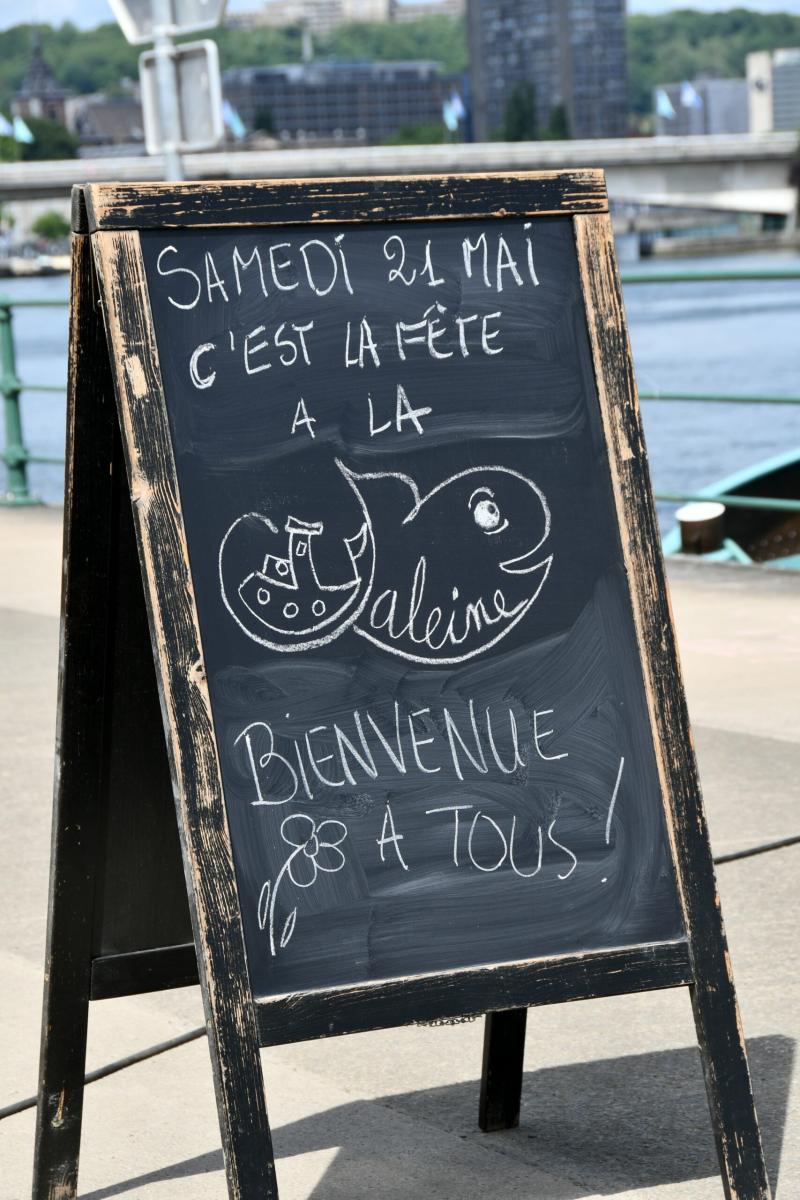 SAMEDI 21 MAI
C'EST LA FÊTE
A LA
Baleine
BIENVENUE
A TOUS !